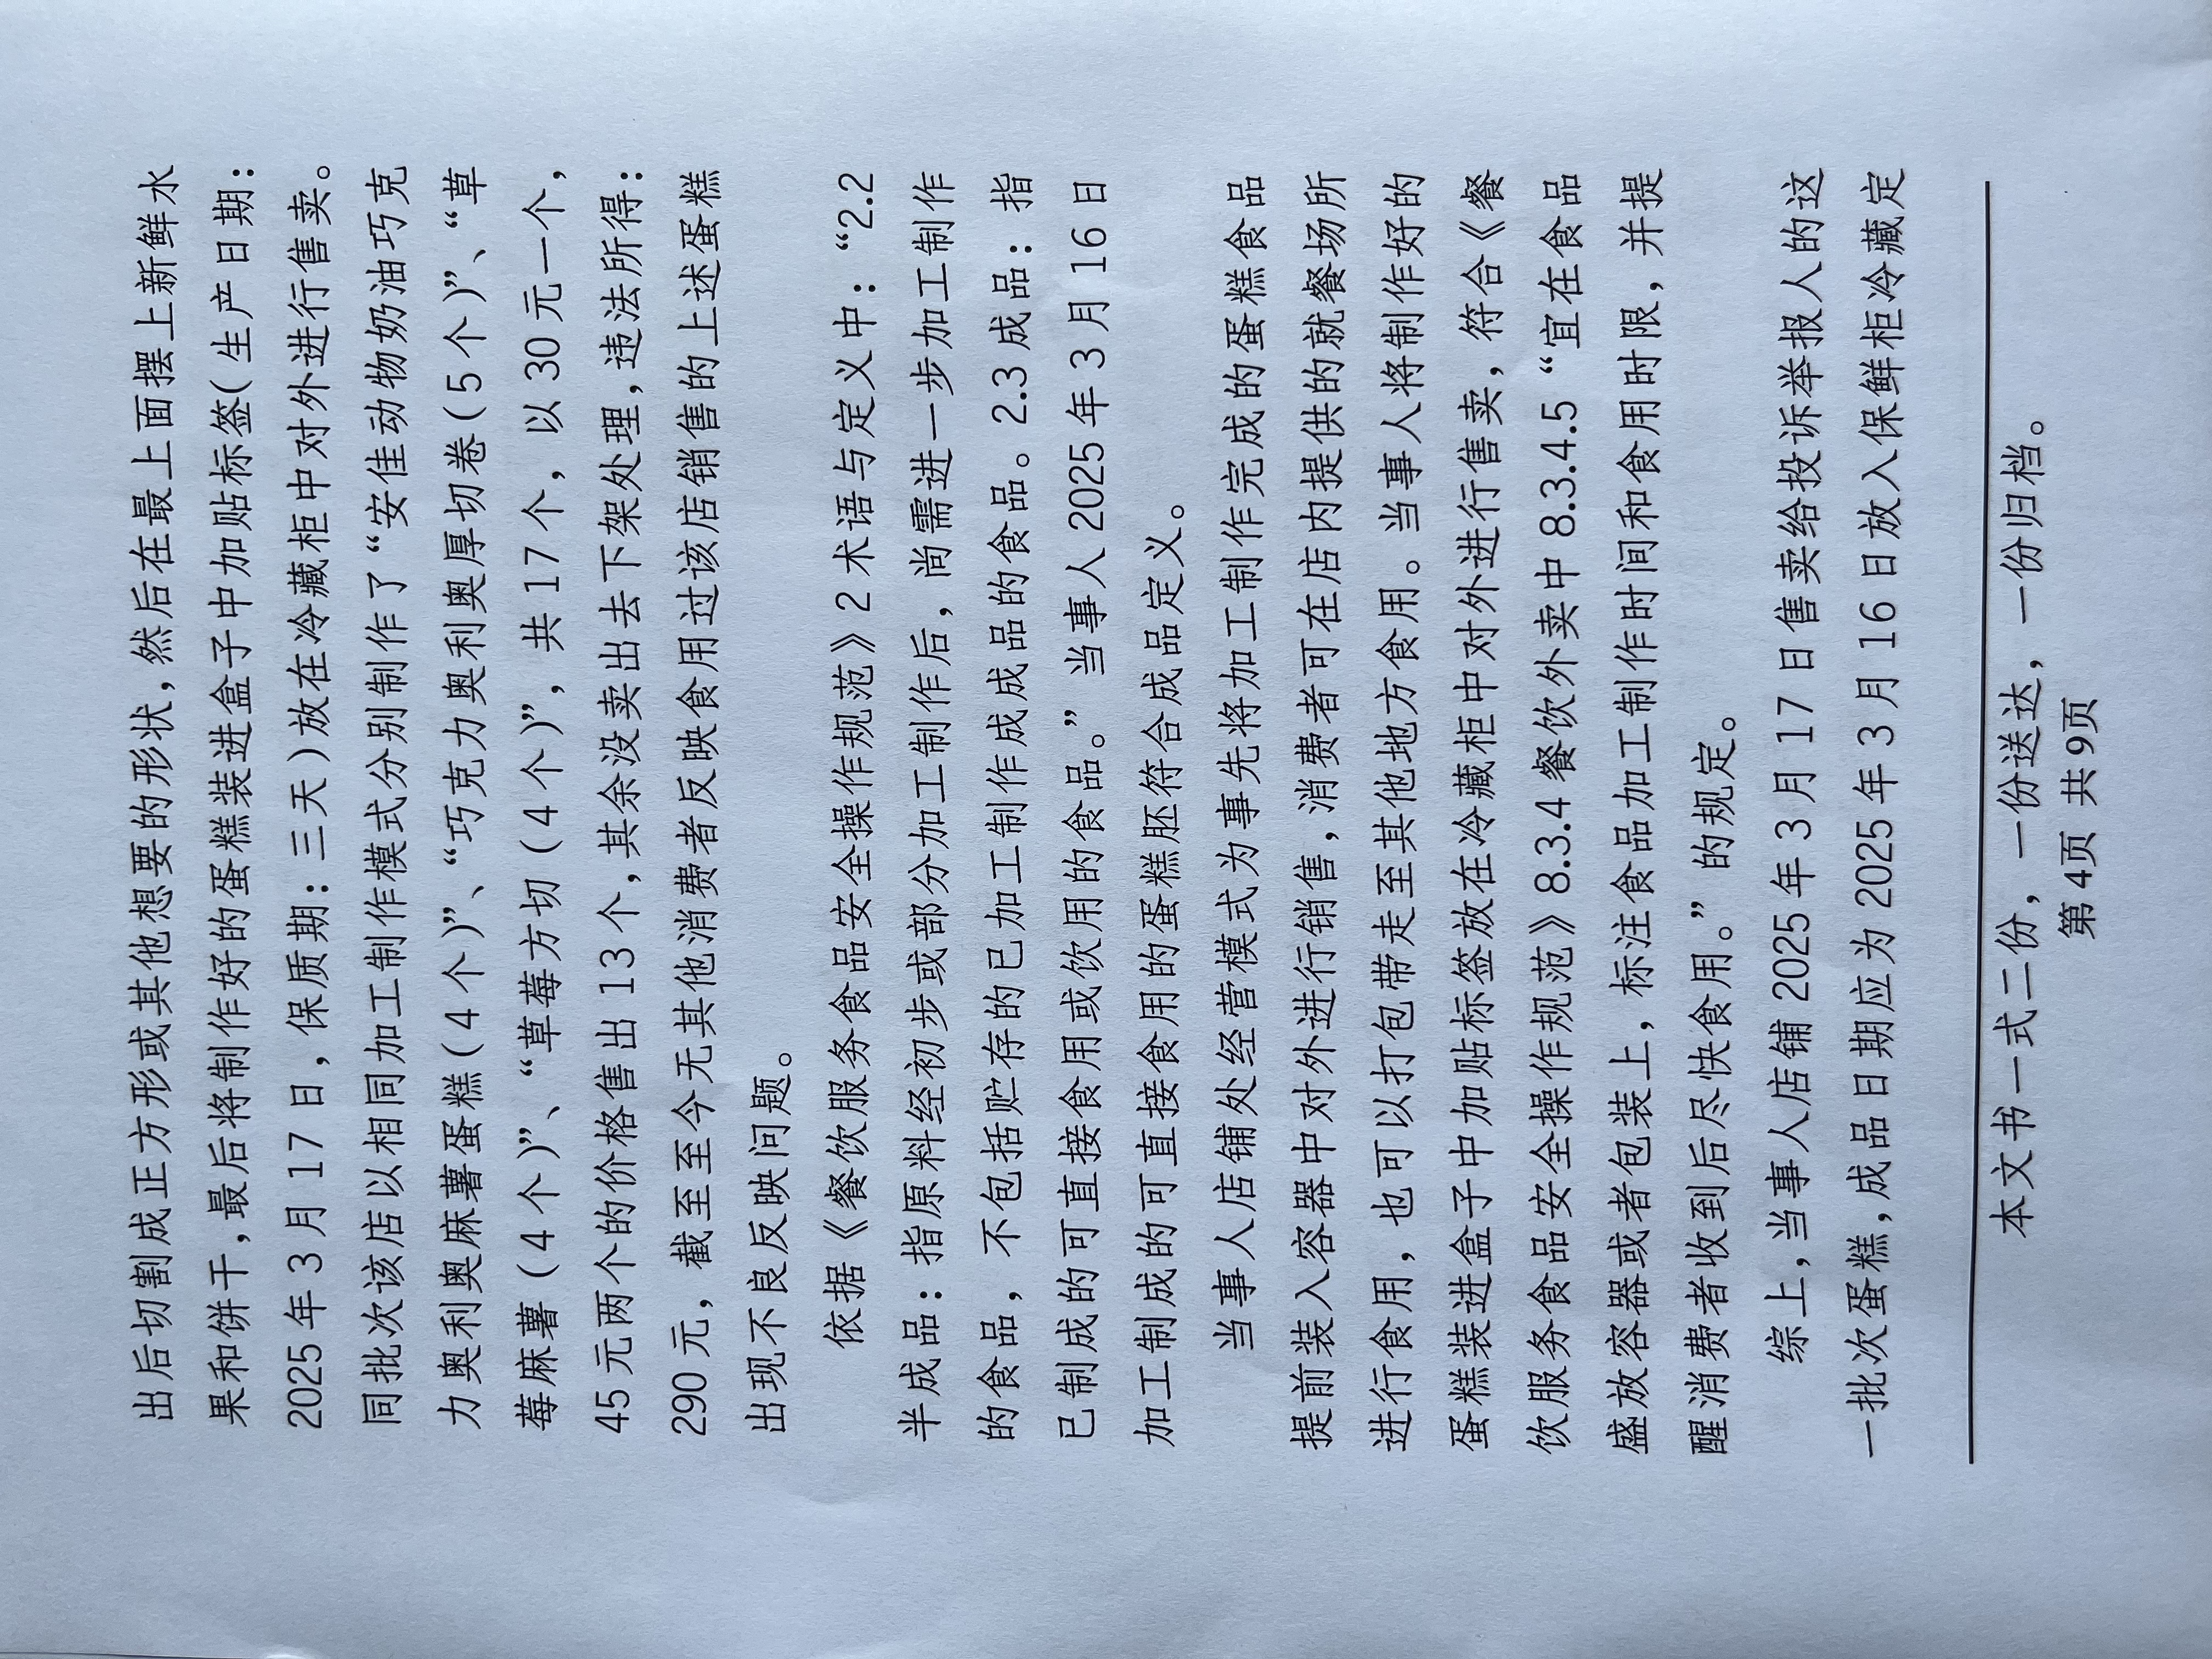 出后切割成正方形或其他想要的形状，然后在最上面摆上新鲜水
果和饼干，最后将制作好的蛋糕装进盒子中加贴标签（生产日期：
2025 年 3 月 17 日，保质期：三天）放在冷藏柜中对外进行售卖。
同批次该店以相同加工制作模式分别制作了“安佳动物奶油巧克
力奥利奥麻薯蛋糕（4 个）”、“巧克力奥利奥厚切卷（5 个）”、“草
莓麻薯（4 个）”、“草莓方切（4 个）”，共 17 个，以 30 元一个，
45 元两个的价格售出 13 个，其余没卖出去下架处理，违法所得：
290 元，截至至今无其他消费者反映食用过该店销售的上述蛋糕
出现不良反映问题。
依据《餐饮服务食品安全操作规范》2 术语与定义中：“2.2
半成品：指原料经初步或部分加工制作后，尚需进一步加工制作
的食品，不包括贮存的已加工制作成成品的食品。2.3 成品：指
已制成的可直接食用或饮用的食品。”当事人 2025 年 3 月 16 日
加工制成的可直接食用的蛋糕胚符合成品定义。
当事人店铺处经营模式为事先将加工制作完成的蛋糕食品
提前装入容器中对外进行销售，消费者可在店内提供的就餐场所
进行食用，也可以打包带走至其他地方食用。当事人将制作好的
蛋糕装进盒子中加贴标签放在冷藏柜中对外进行售卖，符合《餐
饮服务食品安全操作规范》8.3.4 餐饮外卖中 8.3.4.5 “宜在食品
盛放容器或者包装上，标注食品加工制作时间和食用时限，并提
醒消费者收到后尽快食用。”的规定。
综上，当事人店铺 2025 年 3 月 17 日售卖给投诉举报人的这
一批次蛋糕，成品日期应为 2025 年 3 月 16 日放入保鲜柜冷藏定
本文书一式二份，一份送达，一份归档。
第 4页 共 9页